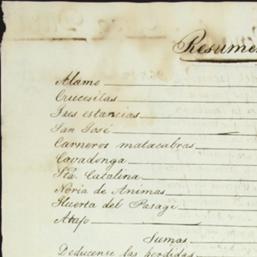 Resumen
Alamo
Crucesitas
Tres estancias
San José
Carneros matacabras
Covadonga
Sta. Catalina
Noria de Animas
Huerta del Pasage
Atajo
Sumas
Deducense las perdidas